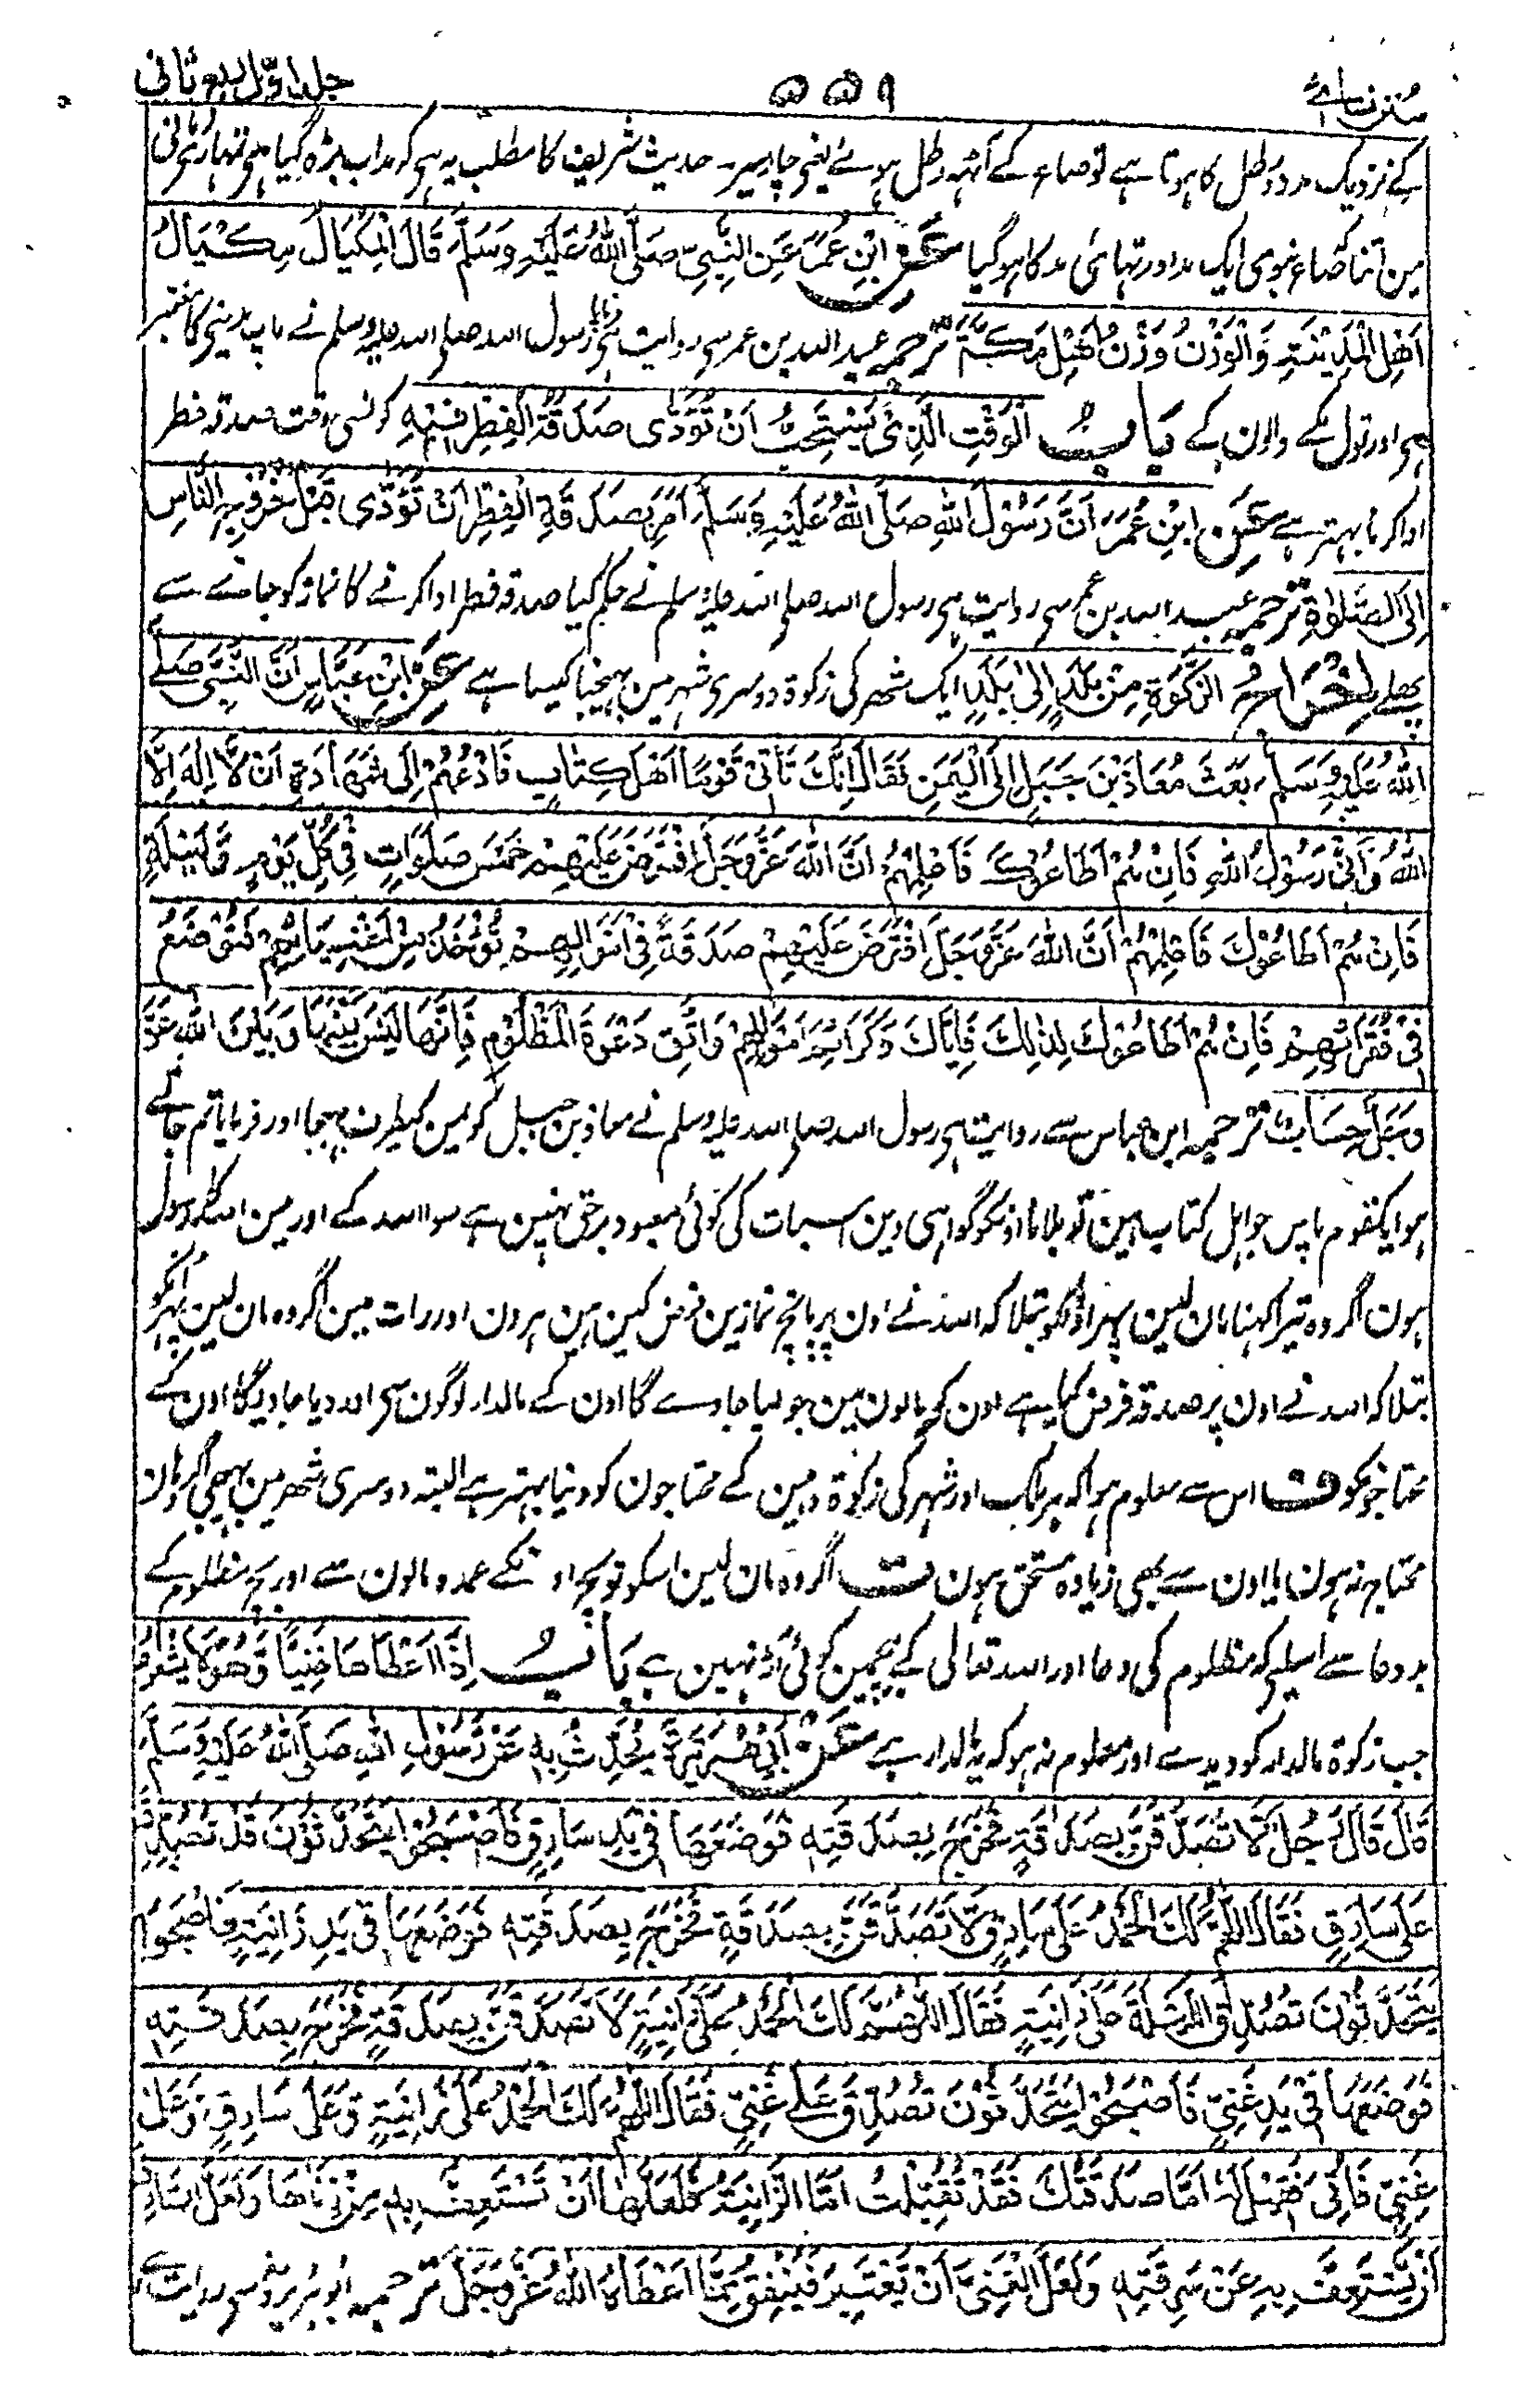 سنن نسائی ۵۵۹ جلد اوّل ربع ثانی
کے نزدیک مد دو رطل کا ہوتا ہے تو صاع کے آٹھ رطل ہوئے یعنی چار سیر۔ حدیث شریف کا مطلب یہ ہی کہ مد اب بڑہ گیا ہی تمہاری زمانی
مین اتنا کہ صاع نبوی ایک مد اور تہائی مد کا ہوگیا عَنِ ابْنِ عُمَرَ عَنِ النَّبِيِّ صَلَّى اللهُ عَلَيْهِ وَسَلَّمَ قَالَ الْمِكْيَالُ مِكْيَالُ
اَهْلِ الْمَدِيْنَةِ وَالْوَزْنُ وَزْنُ اَهْلِ مَكَّةَ ترجمہ عبد اللہ بن عمر سی روایت ہی فرمایا رسول اللہ صلی اللہ علیہ وسلم نے ماپ مدینی کا معتبر
ہی اور تول مکے والون کے بَابُ الْوَقْتِ الَّذِیْ يَسْتَحِبُّ اَنْ تُؤَدّٰى صَدَقَةُ الْفِطْرِ فِيْهِ کونسی وقت صدقہ فطر
ادا کرنا بہتر ہے عَنِ ابْنِ عُمَرَ اَنَّ رَسُوْلَ اللهِ صَلَّى اللهُ عَلَيْهِ وَسَلَّمَ اَمَرَ بِصَدَقَةِ الْفِطْرِ اَنْ تُؤَدّٰى قَبْلَ خُرُوْجِ النَّاسِ
اِلَى الصَّلٰوةِ ترجمہ عبد اللہ بن عمر سی روایت ہی رسول اللہ صلی اللہ علیہ وسلم نے حکم کیا صدقہ فطر ادا کرنے کا نماز کو جانے سے
پہلے اِخْرَاجُ الزَّكٰوةِ مِنْ بَلَدٍ اِلٰى بَلَدٍ ایک شہر کی زکوة دوسری شہر مین بہیجنا کیسا ہے عَنِ ابْنِ عَبَّاسٍ اَنَّ النَّبِيَّ صَلَّى
اللهُ عَلَيْهِ وَسَلَّمَ بَعَثَ مُعَاذَ بْنَ جَبَلٍ اِلَى الْيَمَنِ فَقَالَ اِنَّكَ تَأْتِیْ قَوْمًا اَهْلَ كِتَابٍ فَادْعُهُمْ اِلٰى شَهَادَةِ اَنْ لَّا اِلٰهَ اِلَّا
اللهُ وَاَنِّیْ رَسُوْلُ اللهِ فَاِنْ هُمْ اَطَاعُوْكَ فَاَعْلِمْهُمْ اَنَّ اللهَ عَزَّ وَجَلَّ افْتَرَضَ عَلَيْهِمْ خَمْسَ صَلَوَاتٍ فِیْ كُلِّ يَوْمٍ وَّلَيْلَةٍ
فَاِنْ هُمْ اَطَاعُوْكَ فَاَعْلِمْهُمْ اَنَّ اللهَ عَزَّ وَجَلَّ افْتَرَضَ عَلَيْهِمْ صَدَقَةً فِیْ اَمْوَالِهِمْ تُؤْخَذُ مِنْ اَغْنِيَائِهِمْ فَتُوْضَعُ
فِیْ فُقَرَائِهِمْ فَاِنْ هُمْ اَطَاعُوْكَ لِذٰلِكَ فَاِيَّاكَ وَكَرَائِمَ اَمْوَالِهِمْ وَاتَّقِ دَعْوَةَ الْمَظْلُوْمِ فَاِنَّهَا لَيْسَ بَيْنَهَا وَبَيْنَ اللهِ عَزَّ
وَجَلَّ حِجَابٌ ترجمہ ابن عباس سے روایت ہی رسول اللہ صلی اللہ علیہ وسلم نے معاذ بن جبل کو یمن کیطرف بہیجا اور فرمایا تم جاتے
ہو ایک قوم پاس جو اہل کتاب ہین تو بلانا اونکو گواہی دین اس بات کی کوئی معبود برحق نہین ہے سوا اللہ کے اور مین اللہ کا رسول
ہون اگر وہ تیرا کہنا مان لین پہر اونکو بتلا کہ اللہ نے اون پر پانچ نمازین فرض کین ہین ہر دن اور رات مین اگر وہ مان لین پہر انکو
بتلا کہ اللہ نے اون پر صدقہ فرض کیا ہے اون کے مالون مین جو لیا جاوے گا اون کے مالدار لوگون سی اور دیا جاویگا اون کے
محتاجونکو ف اس سے معلوم ہوا کہ ہر ملک اور شہر کی زکوة وہین کے محتاجون کو دینا بہتر ہے البتہ دوسری شہر مین بہیجی اگر وہان
محتاج نہ ہون یا اون سے بھی زیادہ مستحق ہون ت اگر وہ مان لین اسکو تو بچ اونکے عمدہ مالون سے اور بچ مظلوم کے
بد دعا سے اسلیے کہ مظلوم کی دعا اور اللہ تعالی کے بیچ مین کوئی آڑ نہین ہے بَابُ اِذَا اَعْطَاهَا غَنِيًّا وَّهُوَ لَا يَشْعُرُ
جب زکوة مالدار کو دیدے اور معلوم نہ ہو کہ یہ مالدار ہے عَنْ اَبِیْ هُرَيْرَةَ يُحَدِّثُ بِهٖ عَنْ رَسُوْلِ اللهِ صَلَّى اللهُ عَلَيْهِ وَسَلَّمَ
قَالَ قَالَ رَجُلٌ لَاَتَصَدَّقَنَّ بِصَدَقَةٍ فَخَرَجَ بِصَدَقَتِهٖ فَوَضَعَهَا فِیْ يَدِ سَارِقٍ فَاَصْبَحُوْا يَتَحَدَّثُوْنَ قَدْ تُصُدِّقَ
عَلٰى سَارِقٍ فَقَالَ اللّٰهُمَّ لَكَ الْحَمْدُ عَلٰى سَارِقٍ لَاَتَصَدَّقَنَّ بِصَدَقَةٍ فَخَرَجَ بِصَدَقَتِهٖ فَوَضَعَهَا فِیْ يَدِ زَانِيَةٍ فَاَصْبَحُوْا
يَتَحَدَّثُوْنَ تُصُدِّقَ اللَّيْلَةَ عَلٰى زَانِيَةٍ فَقَالَ اللّٰهُمَّ لَكَ الْحَمْدُ عَلٰى زَانِيَةٍ لَاَتَصَدَّقَنَّ بِصَدَقَةٍ فَخَرَجَ بِصَدَقَتِهٖ
فَوَضَعَهَا فِیْ يَدِ غَنِيٍّ فَاَصْبَحُوْا يَتَحَدَّثُوْنَ تُصُدِّقَ عَلٰى غَنِيٍّ فَقَالَ اللّٰهُمَّ لَكَ الْحَمْدُ عَلٰى زَانِيَةٍ وَّعَلٰى سَارِقٍ وَّعَلٰى
غَنِيٍّ فَاُتِیَ فَقِيْلَ لَهٗ اَمَّا صَدَقَتُكَ فَقَدْ تُقُبِّلَتْ اَمَّا الزَّانِيَةُ فَلَعَلَّهَا اَنْ تَسْتَعِفَّ بِهٖ مِنْ زِنَاهَا وَلَعَلَّ السَّارِقَ
اَنْ يَّسْتَعِفَّ بِهٖ عَنْ سَرِقَتِهٖ وَلَعَلَّ الْغَنِيَّ اَنْ يَّعْتَبِرَ فَيُنْفِقَ مِمَّا اَعْطَاهُ اللهُ عَزَّ وَجَلَّ ترجمہ ابو ہریرہ سی روایت ہے